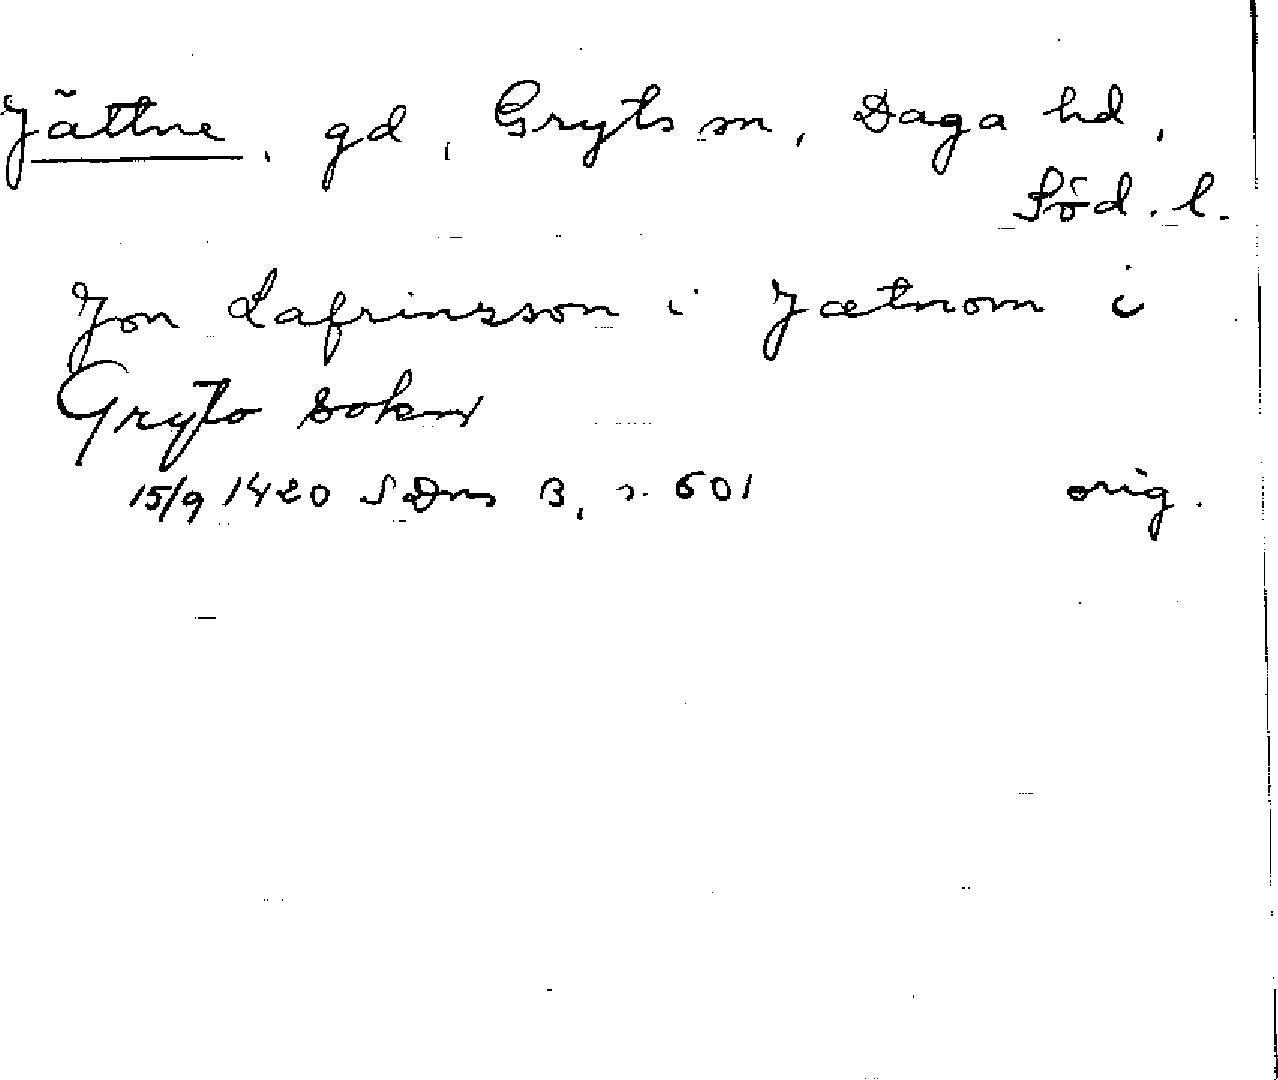 Jättne, gd, Gryts sn, Daga hd,
Söd. l.
Jon Lafrinsson i Jætnom i
Gryto sokn
15/9 1420 SDns 3, s. 601 orig.